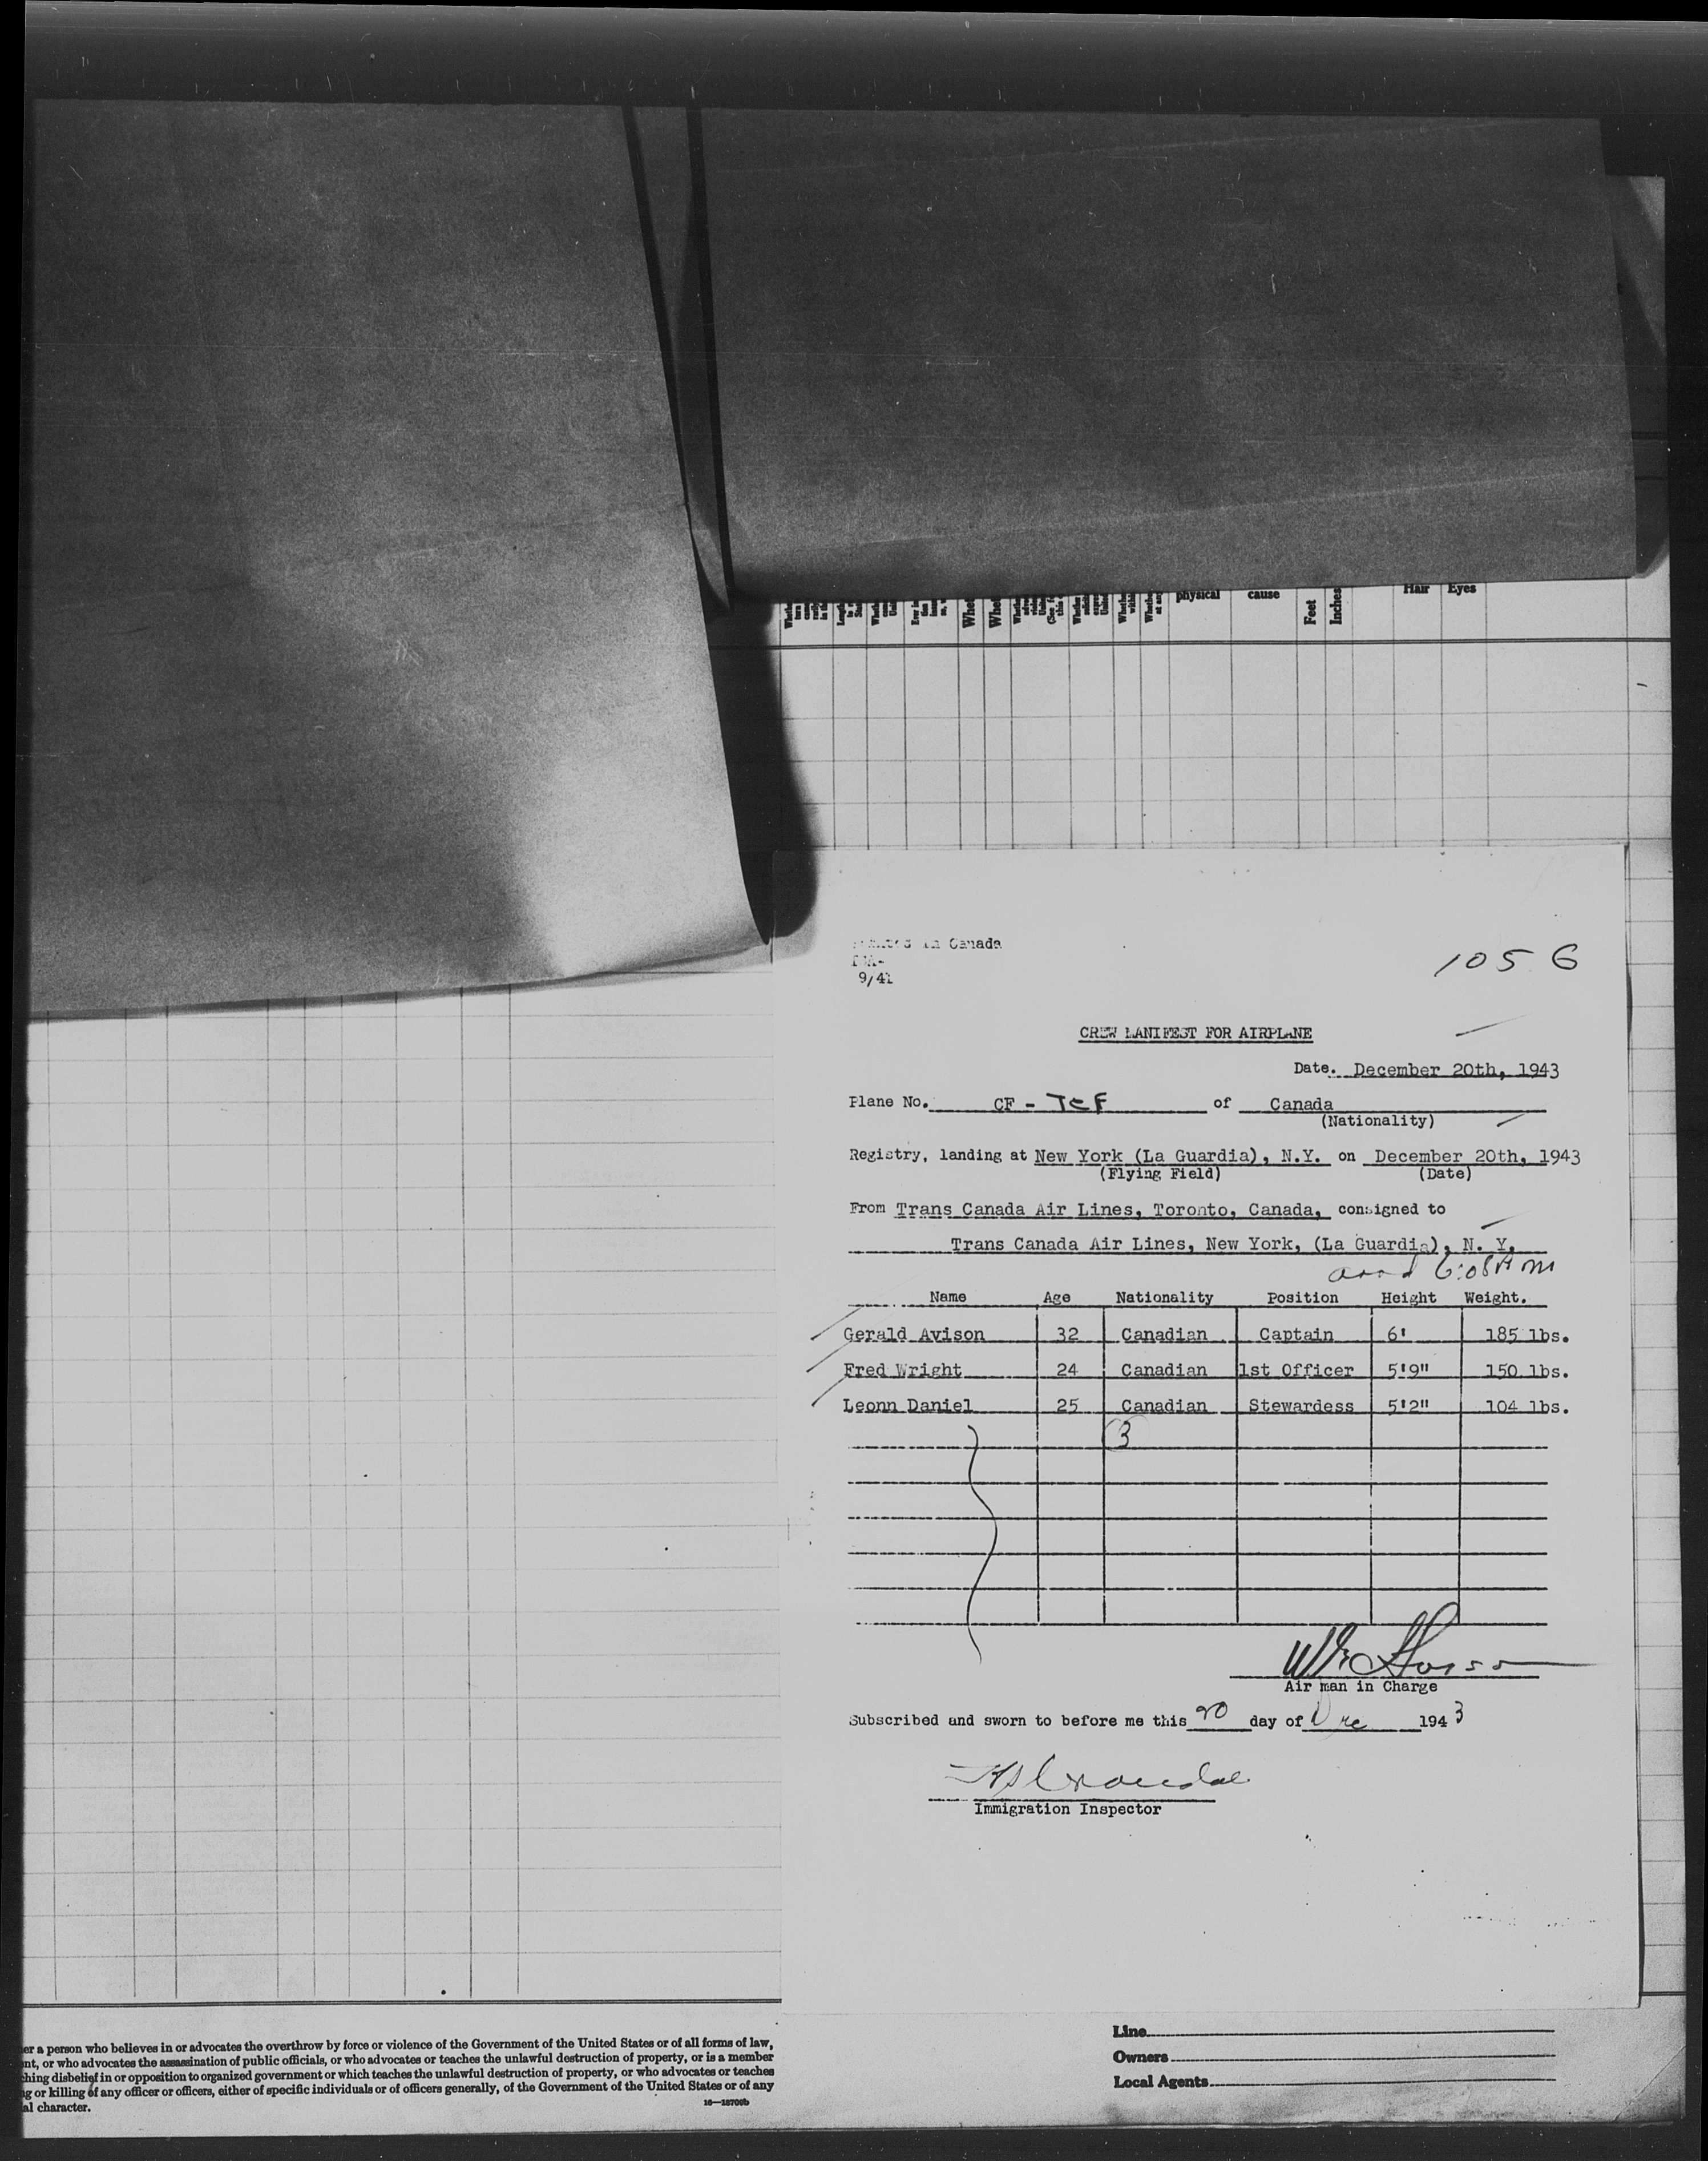 physical cause Feet Inches Hair Eyes
in Canada
9/41
105 6
CREW MANIFEST FOR AIRPLANE
Date. December 20th, 1943
Plane No. CF - TCF of Canada
(Nationality)
Registry, landing at New York (La Guardia), N.Y. on December 20th, 1943
(Flying Field) (Date)
From Trans Canada Air Lines, Toronto, Canada, consigned to
Trans Canada Air Lines, New York, (La Guardia), N. Y.
Name Age Nationality Position Height Weight.
Gerald Avison 32 Canadian Captain 6' 185 lbs.
Fred Wright 24 Canadian 1st Officer 5'9" 150 lbs.
Leonn Daniel 25 Canadian Stewardess 5'2" 104 lbs.
3
Air man in Charge
Subscribed and sworn to before me this 20 day of Dec 1943
Immigration Inspector
er a person who believes in or advocates the overthrow by force or violence of the Government of the United States or of all forms of law,
nt, or who advocates the assassination of public officials, or who advocates or teaches the unlawful destruction of property, or is a member
ching disbelief in or opposition to organized government or which teaches the unlawful destruction of property, or who advocates or teaches
g or killing of any officer or officers, either of specific individuals or of officers generally, of the Government of the United States or of any
al character.
Line
Owners
Local Agents